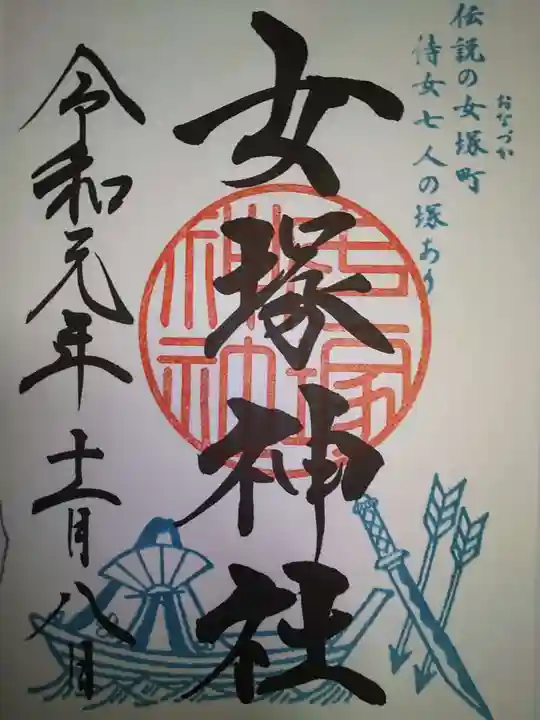 伝説の女塚町
おなづか
侍女七人の塚あり
女塚神社
令和元年十一月八日
女塚神社